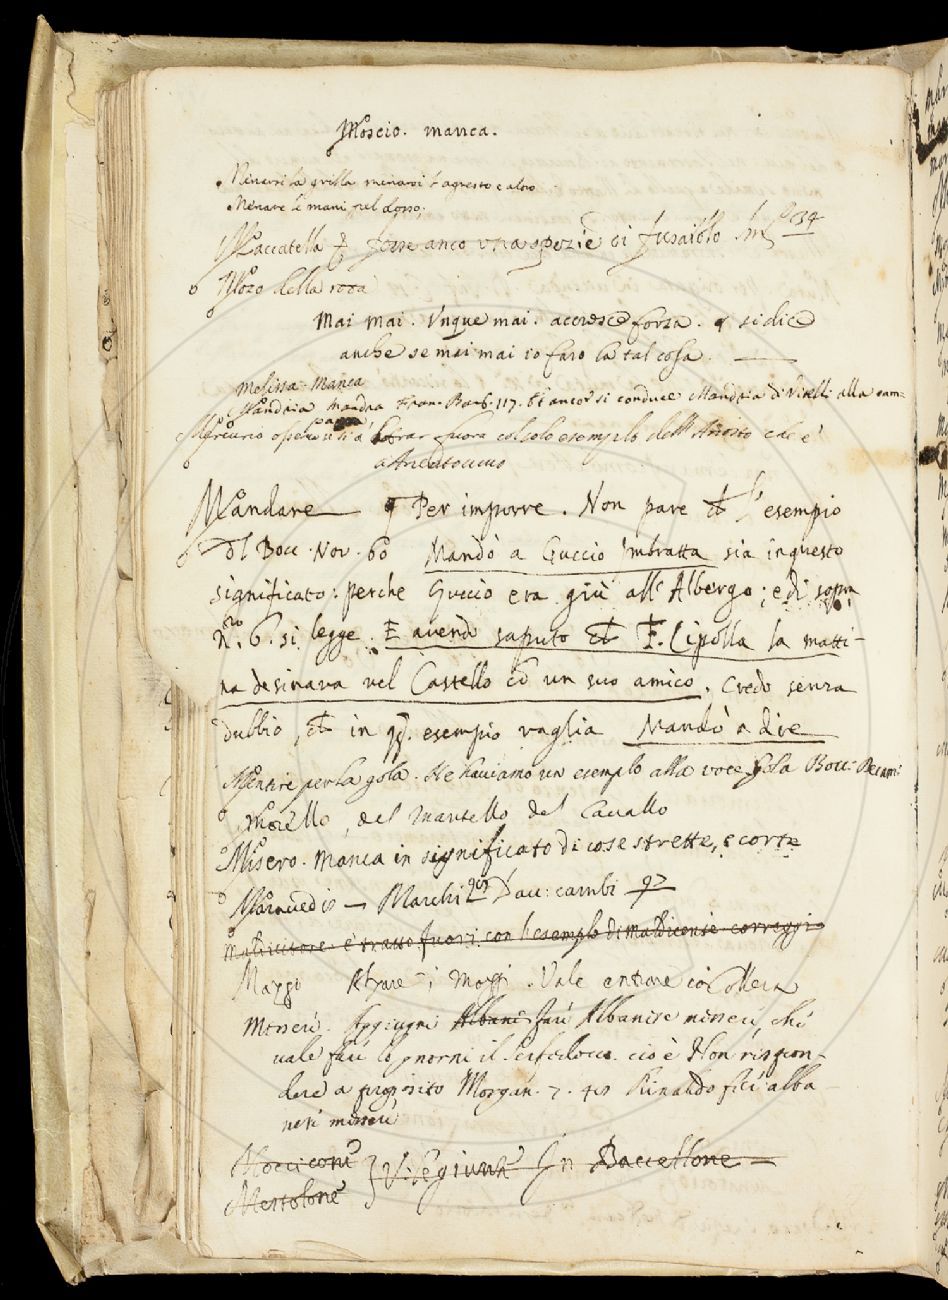 Moscio. manca.
Menarsi la grilla menarsi l'agresto e altro
Menare le mani pel dosso.
Maccatella forse anco una spezie di fusaiolo 134
Mozo della rota
Mai mai. Unque mai. accresce forza. si dice
anche se mai mai io farò la tal cosa.
Melissa. Manca
Mandria mandra Fran. Barb. 117. et ancor si conduce Mandria di Vitelli alla cam=
Mercurio fuora col solo esemplo dell' Ariosto che è
Mandare Per imporre. Non pare che l'esempio
del Bocc. Nov. 60 Mandò a Guccio Imbratta sia in questo
significato: perche Guccio era giù all' Albergo; e di sopra
nro. 6. si legge. E avendo saputo che F. Cipolla la matti-
na desinava nel Castello cō un suo amico. Credo senza
dubbio, che in qo. esempio vaglia Mandò a dire
Mentire per la gola. Ne haviamo un esemplo alla voce gola Bocc:
Morello, del mantello del Cavallo
Misero. Manca in significato di cose strette, e corte
Maravedis — Marchi Dav: cambi 97
Maldicitore è tratto fuori con l'esemplo di Maldicente correggi
Mazzo Alzare i mazzi. Vale entrare in Collera
Messeri. Aggiugni Albani Far Albanese messere, che
vale far lo gnorri il cio è Non rispon-
dere a proposito Morgan. 7. 41 Rinaldo fece alba
nese messere
Mocciconi
Mestolone } V. le giunte In Baccellone =